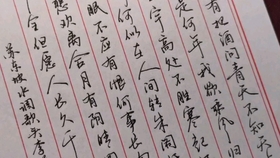 有把酒问青天不知天
是何年我欲乘风归
宇高处不胜寒起
何似在人间转朱阁
眠不应有恨何事
悲欢离合月有阴晴
全但愿人长久千
苏东坡水调歌头李